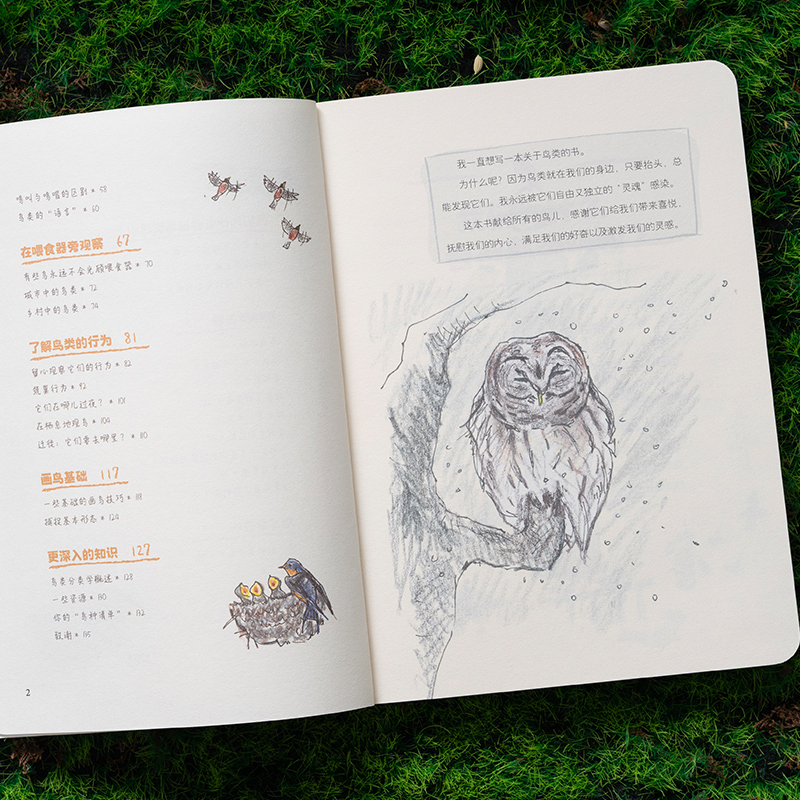 鸣叫与鸣唱的区别 * 58
鸟类的“语言” * 60
在喂食器旁观察 67
有些鸟永远不会光顾喂食器 * 70
城市中的鸟类 * 72
乡村中的鸟类 * 74
了解鸟类的行为 81
留心观察它们的行为 * 82
筑巢行为 * 92
它们在哪儿过夜? * 101
在栖息地观鸟 * 104
迁徙:它们要去哪里? * 110
画鸟基础 117
一些基础的画鸟技巧 * 118
捕捉基本形态 * 124
更深入的知识 127
鸟类分类学概述 * 128
一些资源 * 130
你的“鸟种清单” * 132
致谢 * 135
2
我一直想写一本关于鸟类的书。
为什么呢?因为鸟类就在我们的身边,只要抬头,总
能发现它们。我永远被它们自由又独立的“灵魂”感染。
这本书献给所有的鸟儿,感谢它们给我们带来喜悦、
抚慰我们的内心,满足我们的好奇以及激发我们的灵感。